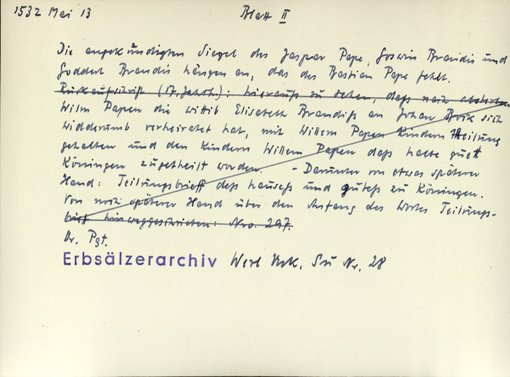 1532 Mai 13 Blatt II
Die angekündigten Siegel des Jaspar Pape, Goswin Brandis und
Goddert Brandis hängen an, das des Bastian Pape fehlt.
Rückaufschrift (17. Jahrh.): hieraufs zu sehen, dass nach absterben
Wilm Papen die wittib Elisabeth Brandiss an Johan Brik sich
widderumb verheiratet hat, mit Willem Papen Kindern Theilung
gehalten und den Kindern Willem Papen dass halbe guet
Körningen zugetheilt worden. - Darunter von etwas späterer
Hand: Teilungsbrieff dess hausess und gutess zu Körningen.
Von noch späterer Hand über den Anfang des Wortes Teilungs-
brief hinweggeschrieben: Nro. 297.
Or. Pgt.
Erbsälzerarchiv Werl Urk. Nr. 28